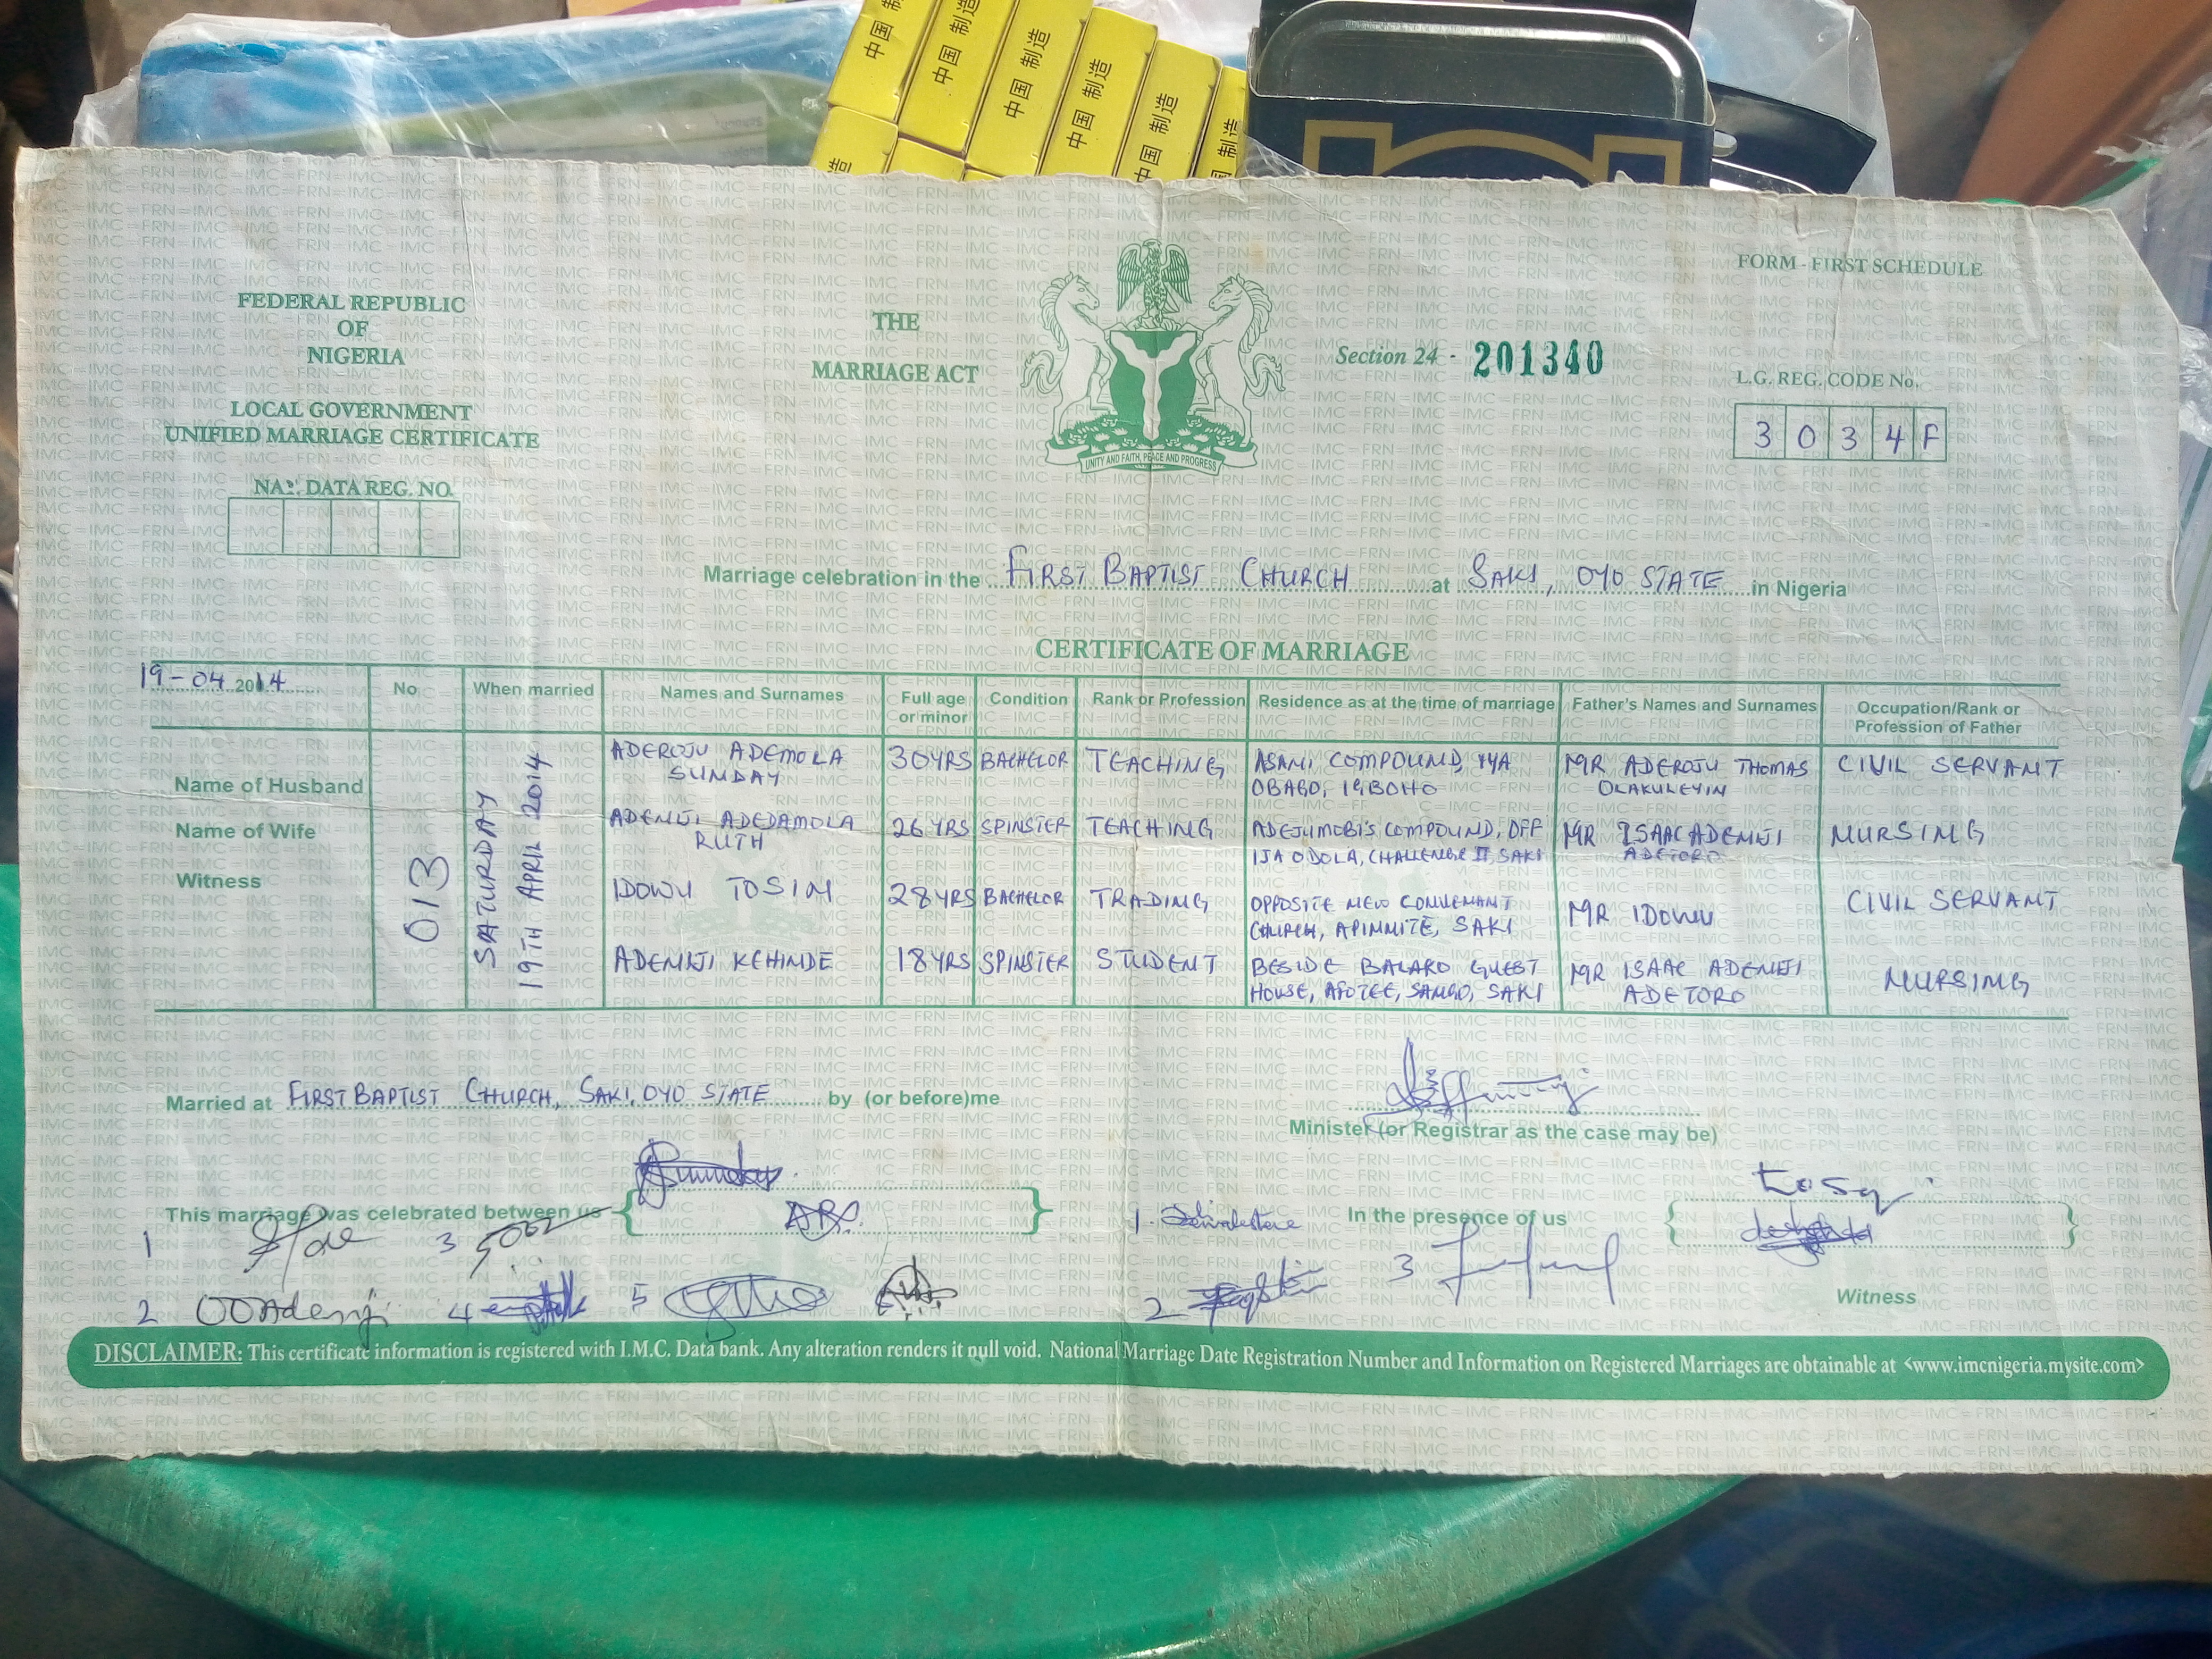 中国 制造
中国 制造
中国 制造
中国 制造
中国 制造
制造
FORM - FIRST SCHEDULE
FEDERAL REPUBLIC
OF
NIGERIA
THE
MARRIAGE ACT
Section 24 - 201340
L.G. REG. CODE No.
3 0 3 4 F
LOCAL GOVERNMENT
UNIFIED MARRIAGE CERTIFICATE
UNITY AND FAITH, PEACE AND PROGRESS
NAT. DATA REG. NO.
Marriage celebration in the FIRST BAPTIST CHURCH at SAKI, OYO STATE in Nigeria
CERTIFICATE OF MARRIAGE
19-04 2014 No When married Names and Surnames Full age or minor Condition Rank or Profession Residence as at the time of marriage Father's Names and Surnames Occupation/Rank or Profession of Father
013
SATURDAY
19TH APRIL 2014
Name of Husband ADEROJU ADEMOLA SUNDAY 30YRS BACHELOR TEACHING ASANI COMPOUND, IYA OBABO, IGBOHO MR ADEROJU THOMAS OLAKULEYIN CIVIL SERVANT
Name of Wife ADENIJI ADEDAMOLA RUTH 26YRS SPINSTER TEACHING ADEJUMOBI'S COMPOUND, OFF ISA ODOLA, CHALLENGE II, SAKI MR ISAAC ADENIJI ADETORO NURSING
Witness IDOWU TOSIN 28YRS BACHELOR TRADING OPPOSITE NEW CONVENANT CHURCH, APINNITE, SAKI MR IDOWU CIVIL SERVANT
ADENIJI KEHINDE 18YRS SPINSTER STUDENT BESIDE BALAKO GUEST HOUSE, AFOTEE, SANGO, SAKI MR ISAAC ADENIJI ADETORO NURSING
Married at FIRST BAPTIST CHURCH, SAKI, OYO STATE by (or before)me
Minister (or Registrar as the case may be)
This marriage was celebrated between us
In the presence of us
1 3 1.
2 OOAdeniji 4 5 2 3
Witness
DISCLAIMER: This certificate information is registered with I.M.C. Data bank. Any alteration renders it null void. National Marriage Date Registration Number and Information on Registered Marriages are obtainable at <www.imcnigeria.mysite.com>